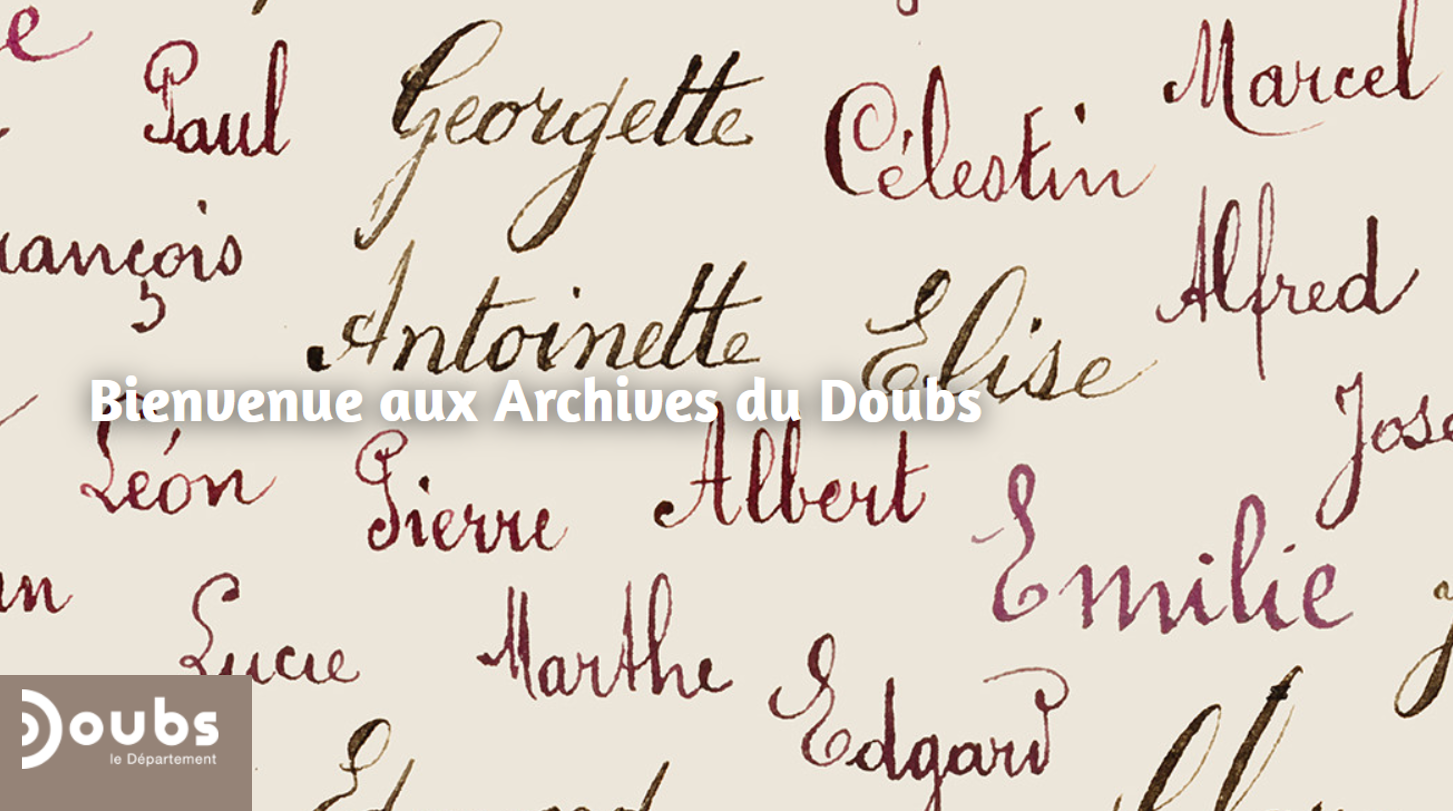 Paul
Georgette
Célestin
Marcel
François
Antoinette
Elise
Alfred
Bienvenue aux Archives du Doubs
Léon
Pierre
Albert
Emilie
Lucie
Marthe
Edgard
Doubs
le Département